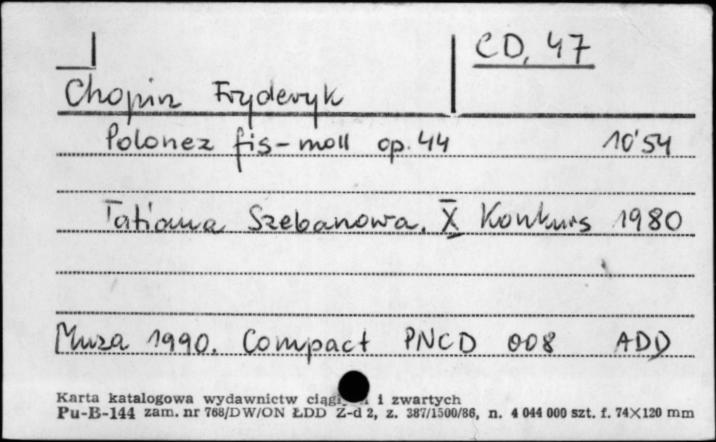 CD, 47
Chopin Fryderyk
Polonez fis-moll op. 44 10'54
Tatiana Szebanowa. X Konkurs 1980
Muza 1990. Compact PNCD 008 ADD
Karta katalogowa wydawnictw i zwartych
Pu-B-144 zam. nr 768/DW/ON ŁDD Z-d 2, z. 387/1500/86, n. 4 044 000 szt. f. 74×120 mm